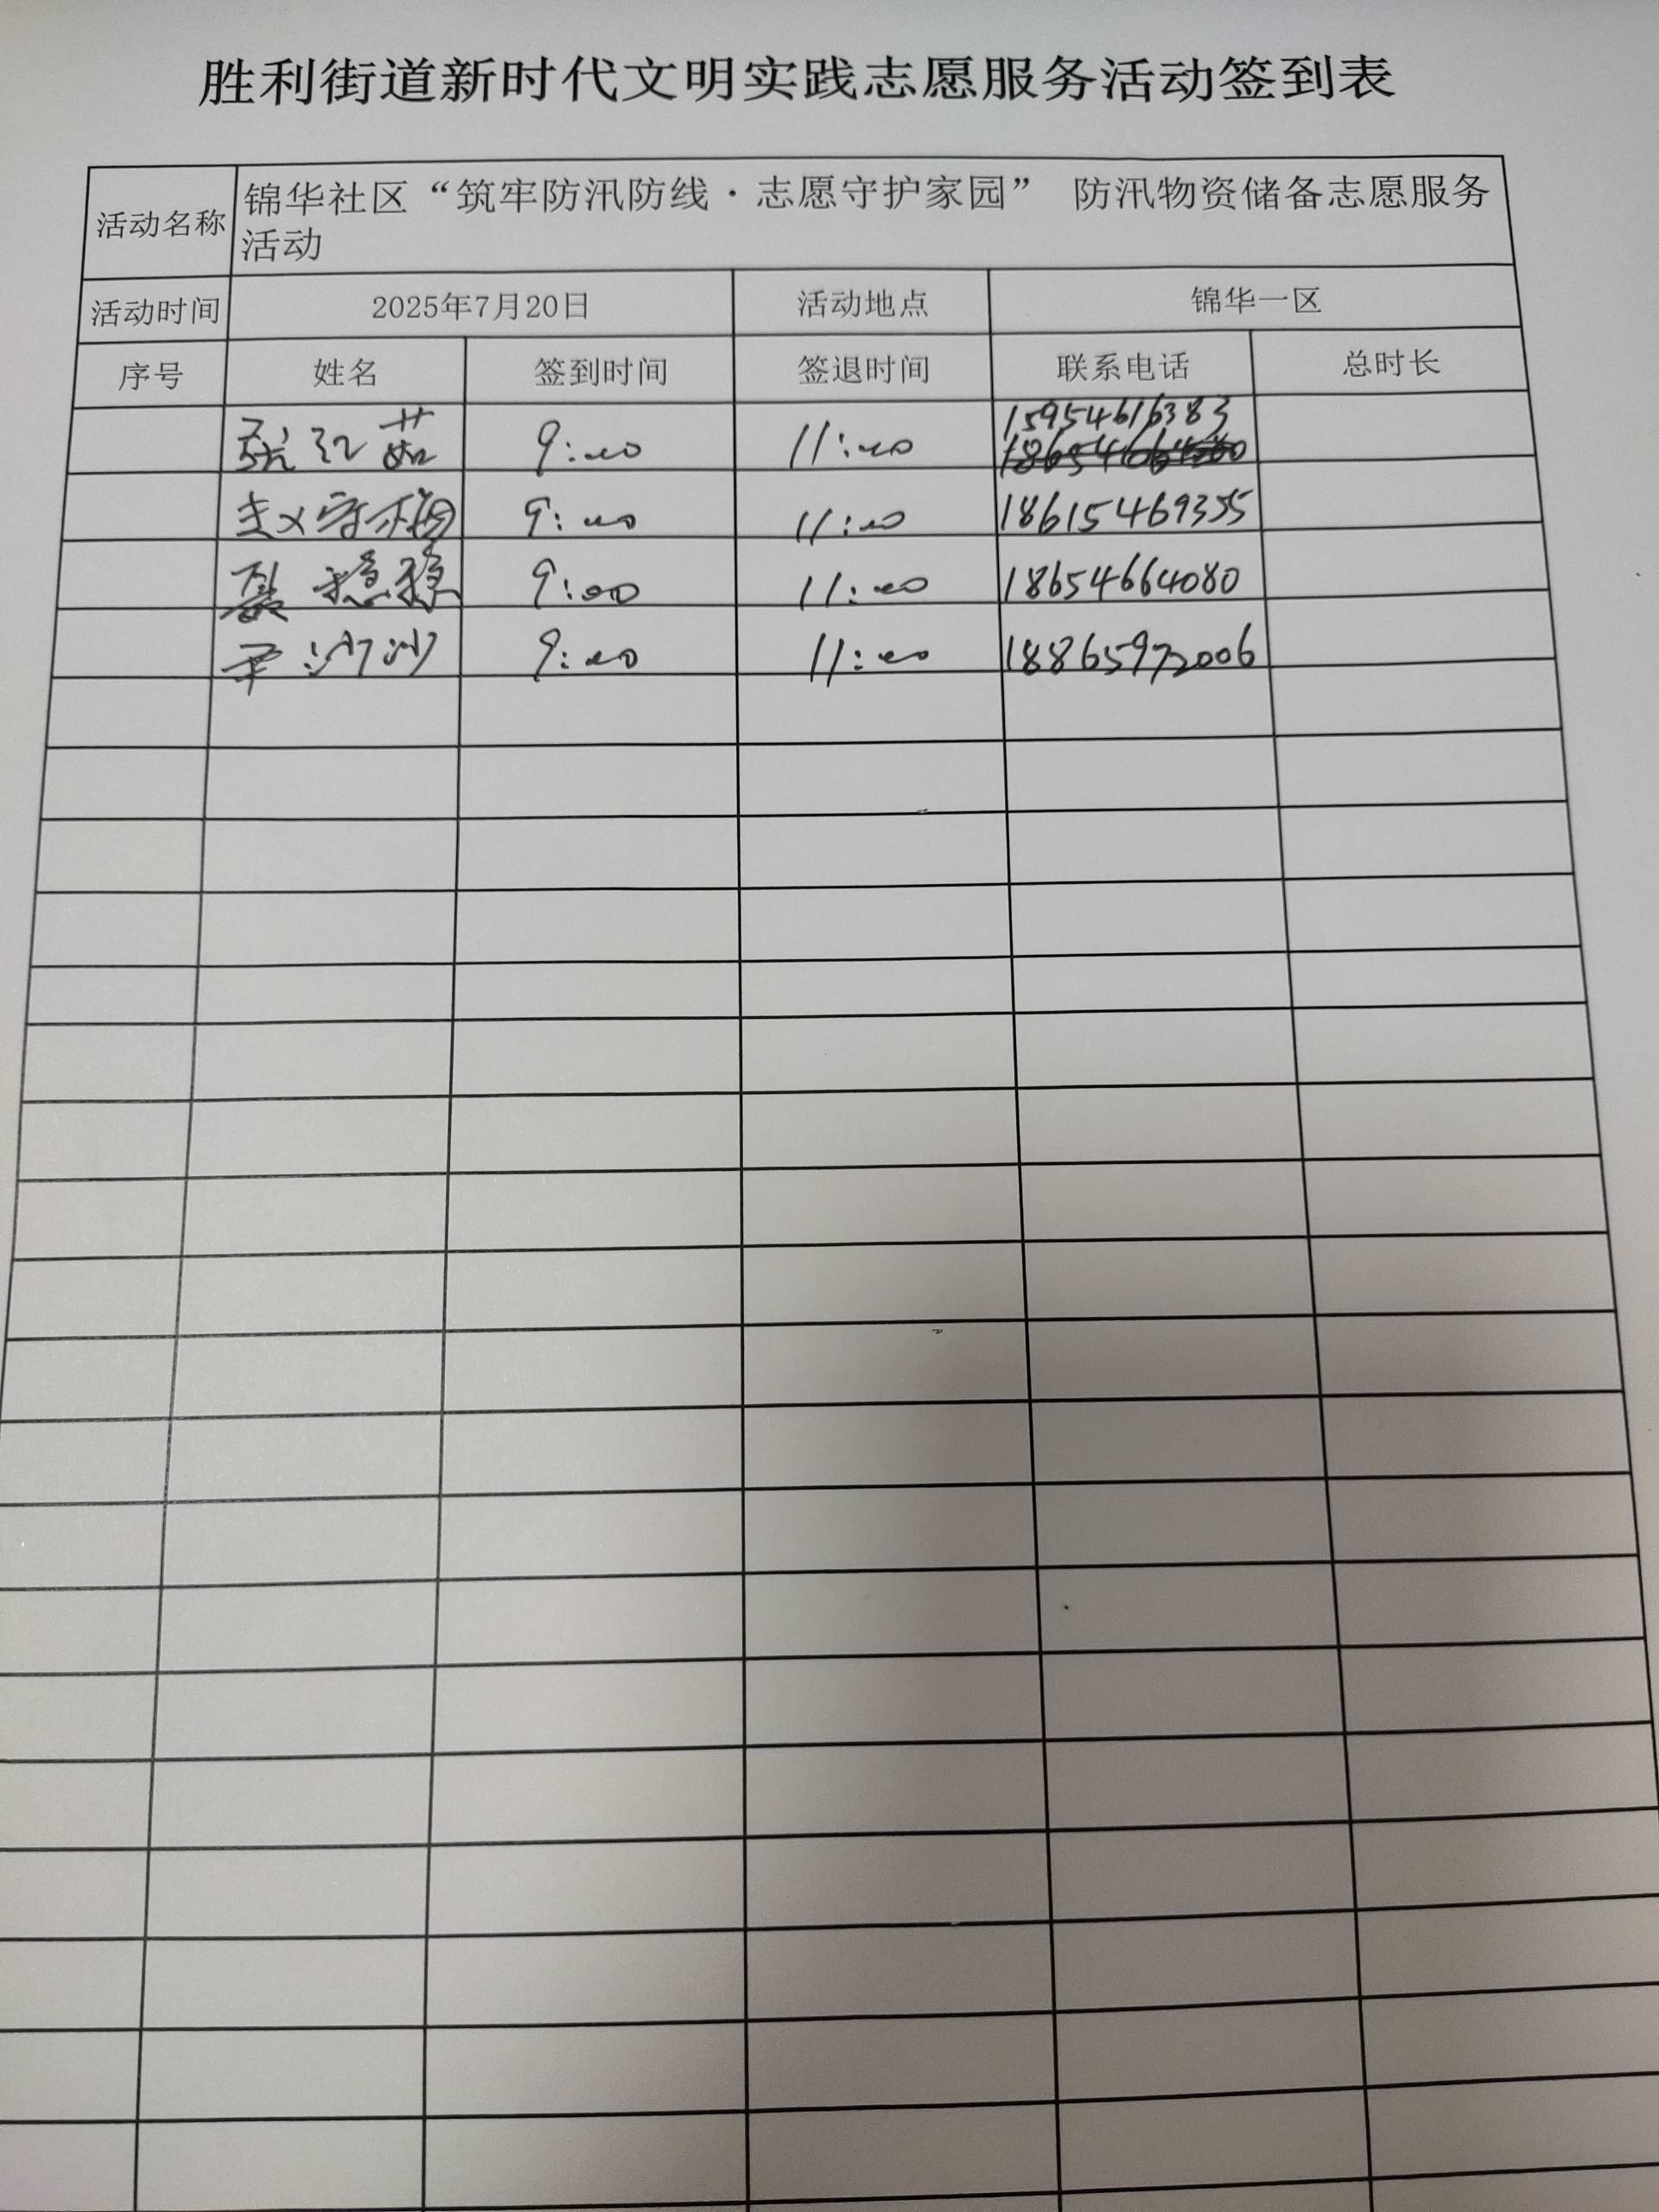 胜利街道新时代文明实践志愿服务活动签到表
活动名称 锦华社区“筑牢防汛防线·志愿守护家园” 防汛物资储备志愿服务
活动
活动时间 2025年7月20日 活动地点 锦华一区
序号 姓名 签到时间 签退时间 联系电话 总时长
15954616383
张红茹 9:00 11:00
9:00 11:00 18615469355
聂稳稳 9:00 11:00 18654664080
尹沙沙 9:00 11:00 18865972006